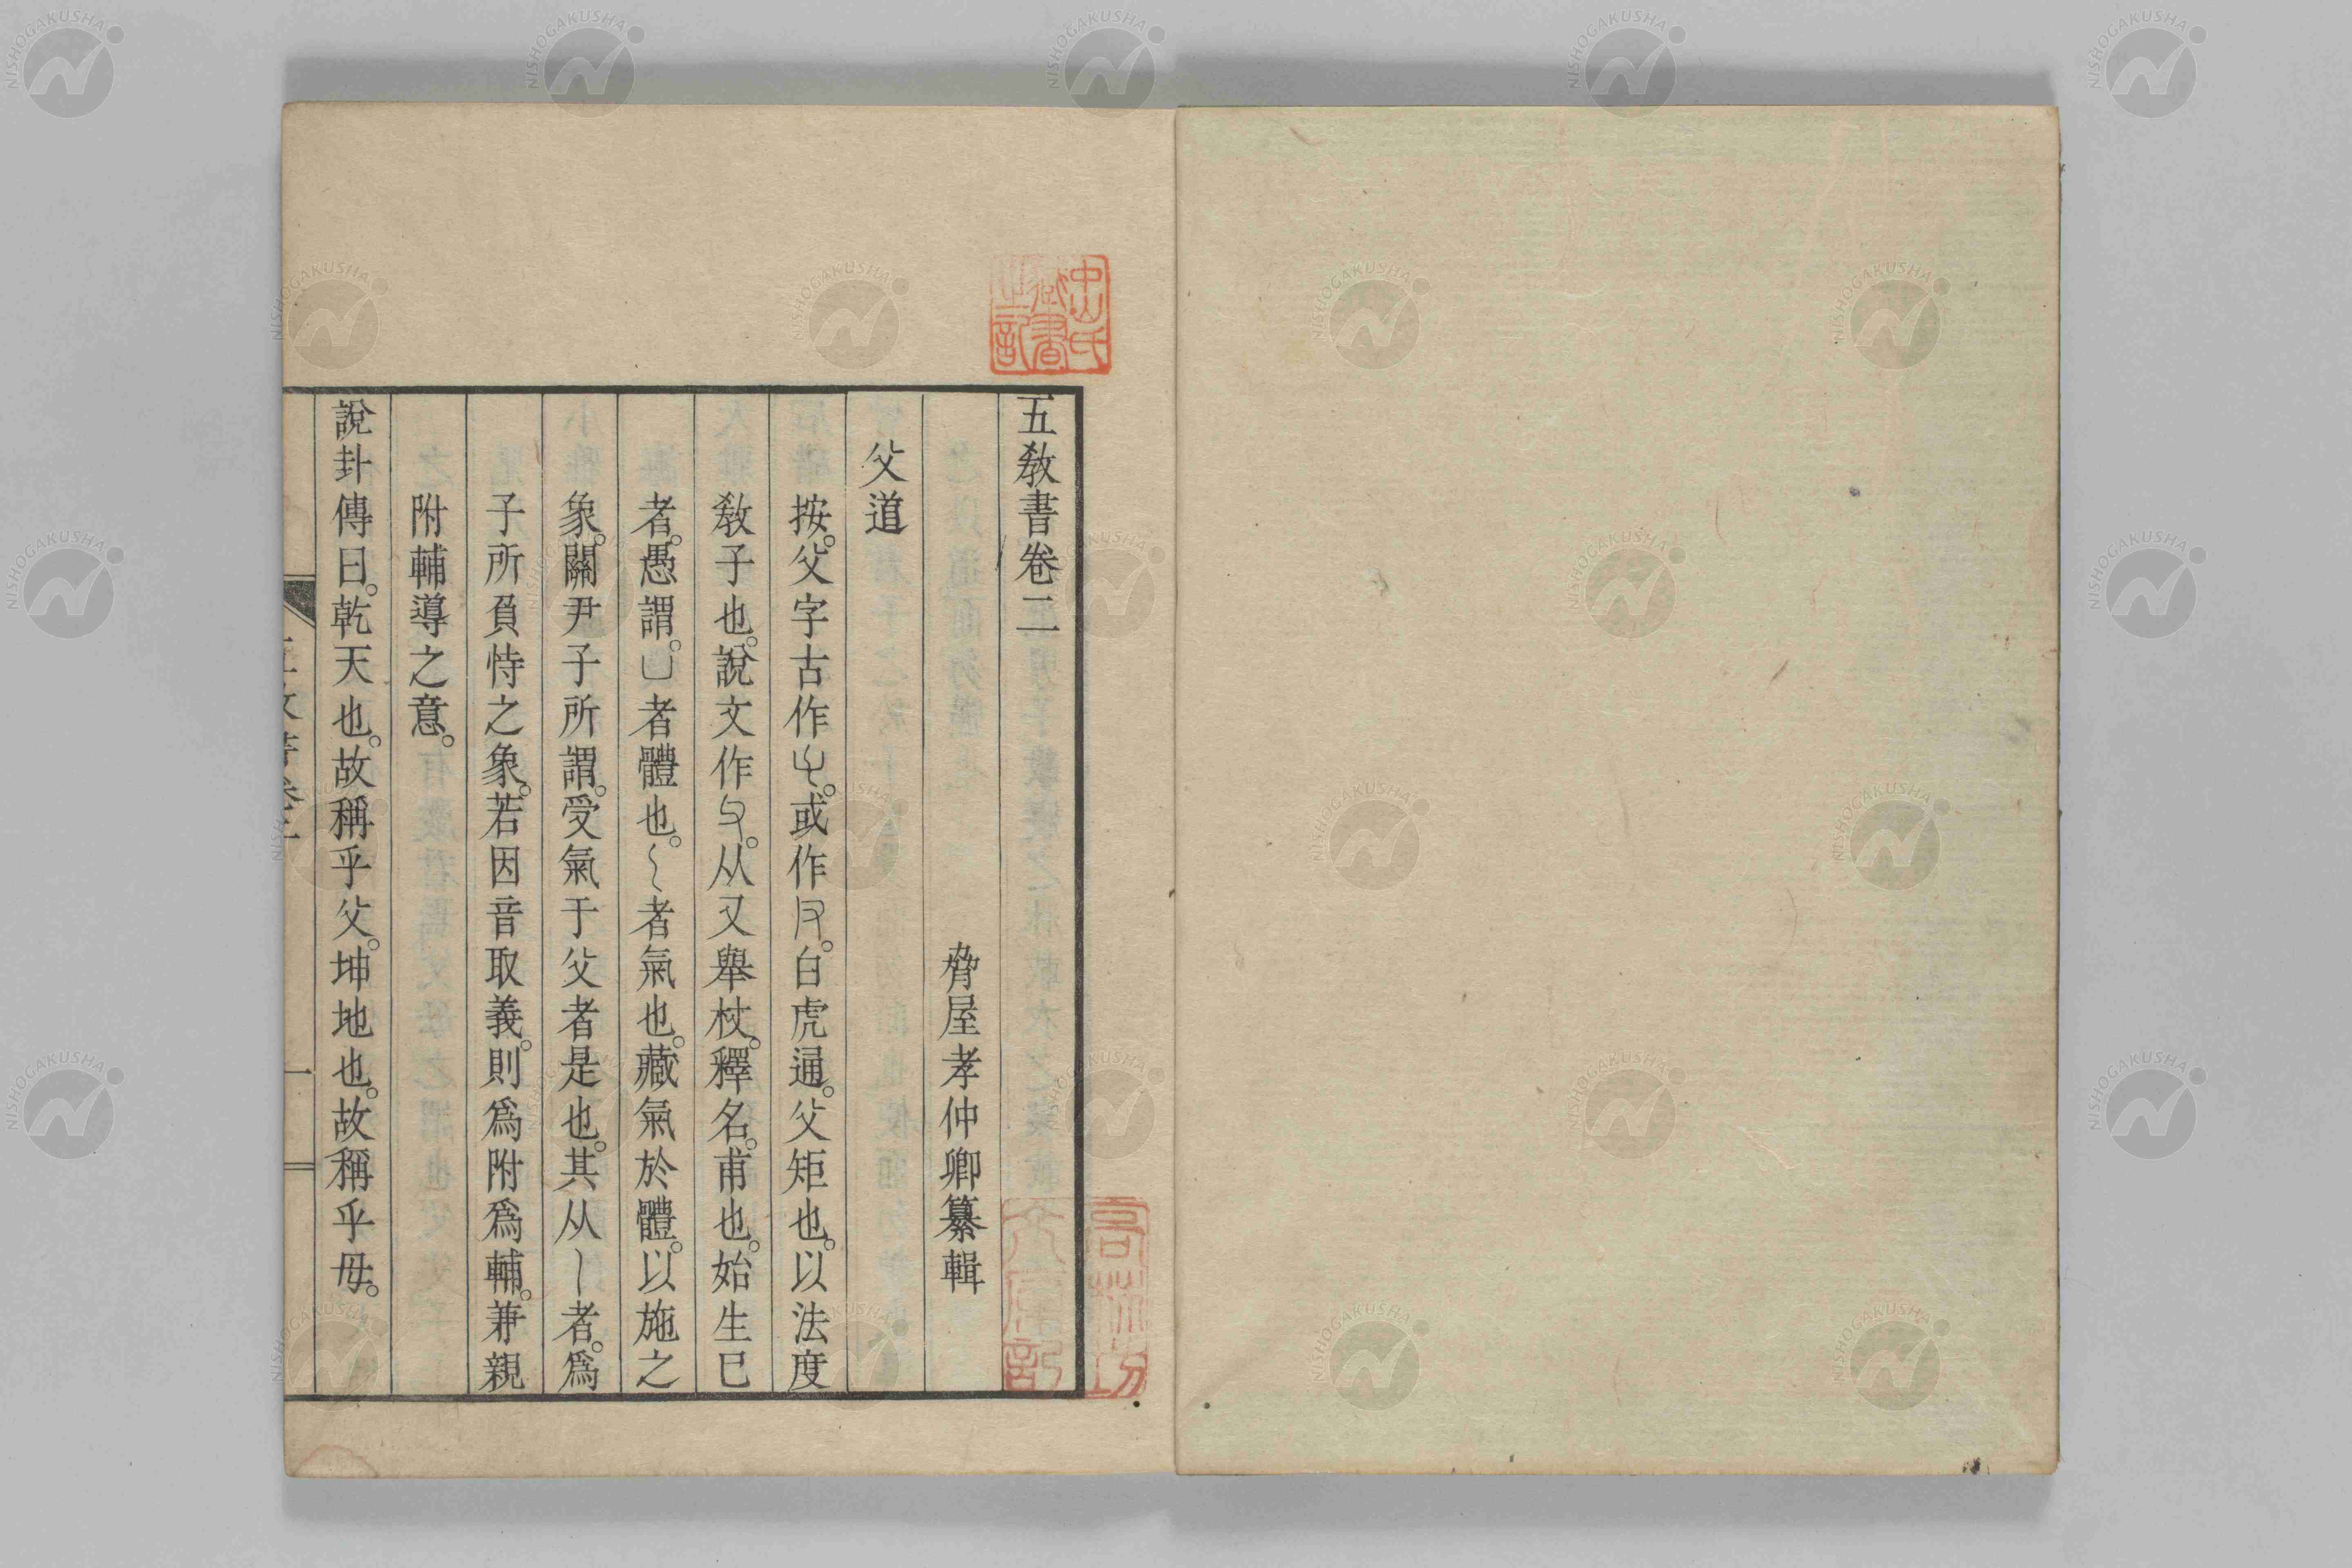 五敎書卷二
脅屋孝仲卿纂輯
父道
按。父字古作。或作。白虎通。父矩也。以法度
敎子也。說文作。从又舉杖。釋名。甫也。始生巳
者。愚謂。凵者體也。者氣也。藏氣於體。以施之
象。關尹子所謂。受氣于父者是也。其从者。爲
子所負恃之象。若因音取義。則爲附爲輔。兼親
附輔導之意。
說卦傳曰。乾天也。故稱乎父。坤地也。故稱乎母。
一
NISHOGAKUSHA